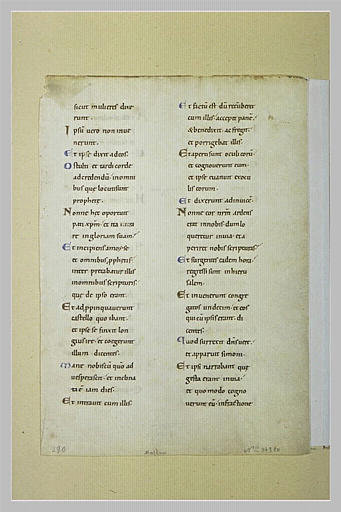 sicut mulieres dixe
runt.
Ipsū uero non inue
nerunt.
Et ipse dixit ad eos.
O stulti et tardi corde
ad credendū in omni
bus que locuti sunt
prophete.
Nonne hec oportuit
pati xp̄m. et ita intra
re in gloriam suam?
Et incipiens a moyse
et omnibus pphetis
inter pretabatur illis
in omnibus scripturis
que de ipso erant.
Et adppinquauerunt
castello quo ibant.
et ipse se finxit lon
gius ire. et coegerunt
illum dicentes.
Mane nobiscū quo ad
uesperascit. et inclina
ta ē iam dies.
Et intrauit cum illis.
Et factū est dū recūberet
cum illis. accepit panē.
& benedixit. ac fregit.
et porrigebat illis.
Et aperti sunt oculi eorū.
et cognouerunt eum.
et ipse euanuit ex ocu
lis eorum.
Et dixerunt adinuicē.
Nonne cor nr̄m ardens
erat in nobis dum lo
queretur in uia. et a
periret nobis scripturas?
Et surgentes eadem hora.
regressi sunt in hieru
salem.
Et inuenerunt congre
gatos undecim. et eos
qui cū ipsis erant. di
centes.
Quod surrexit dn̄s uere.
et apparuit simoni.
Et ipsi narrabant que
gesta erant in uia.
et quo modo cogno
uerunt eū in fractione